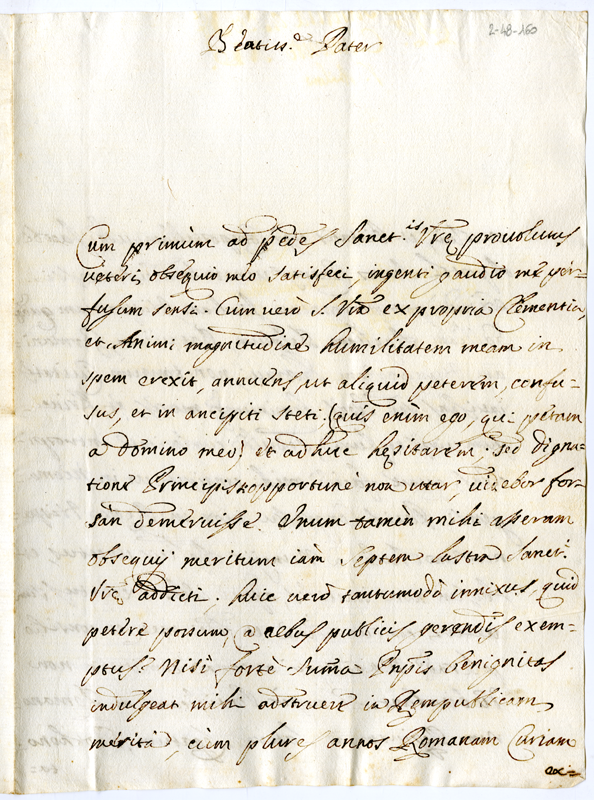 2-48-160
Beatiss.e Pater
Cum primùm ad pedes Sanct.is Vrę provolutus
veteri obsequio meo satisfeci, ingenti gaudio me per-
fusum sensi. Cum verò S. Vra ex propria Clementia,
et Animi magnitudine humilitatem meam in
spem erexit, annuens, ut aliquid peterem, confu-
sus, et in ancipiti steti. (quis enim ego, qui petam
a Domino meo) et adhuc hęsitarem. sed digna-
tione Principis opportunè non utar, videbor for-
sàn demeruisse. Unum tamèn mihi asseram
obsequij meritum iàm septem lustra Sanct.i
Vrę addicti. huic verò tantumodò innixus, quid
petere possum, a rebus publicis gerendis exem-
ptus? Nisi fortè summa Pnpis benignitas
indulgeat mihi adstruere in Rempublicam
merita, cùm plures annos Romanam Curiam
ex=